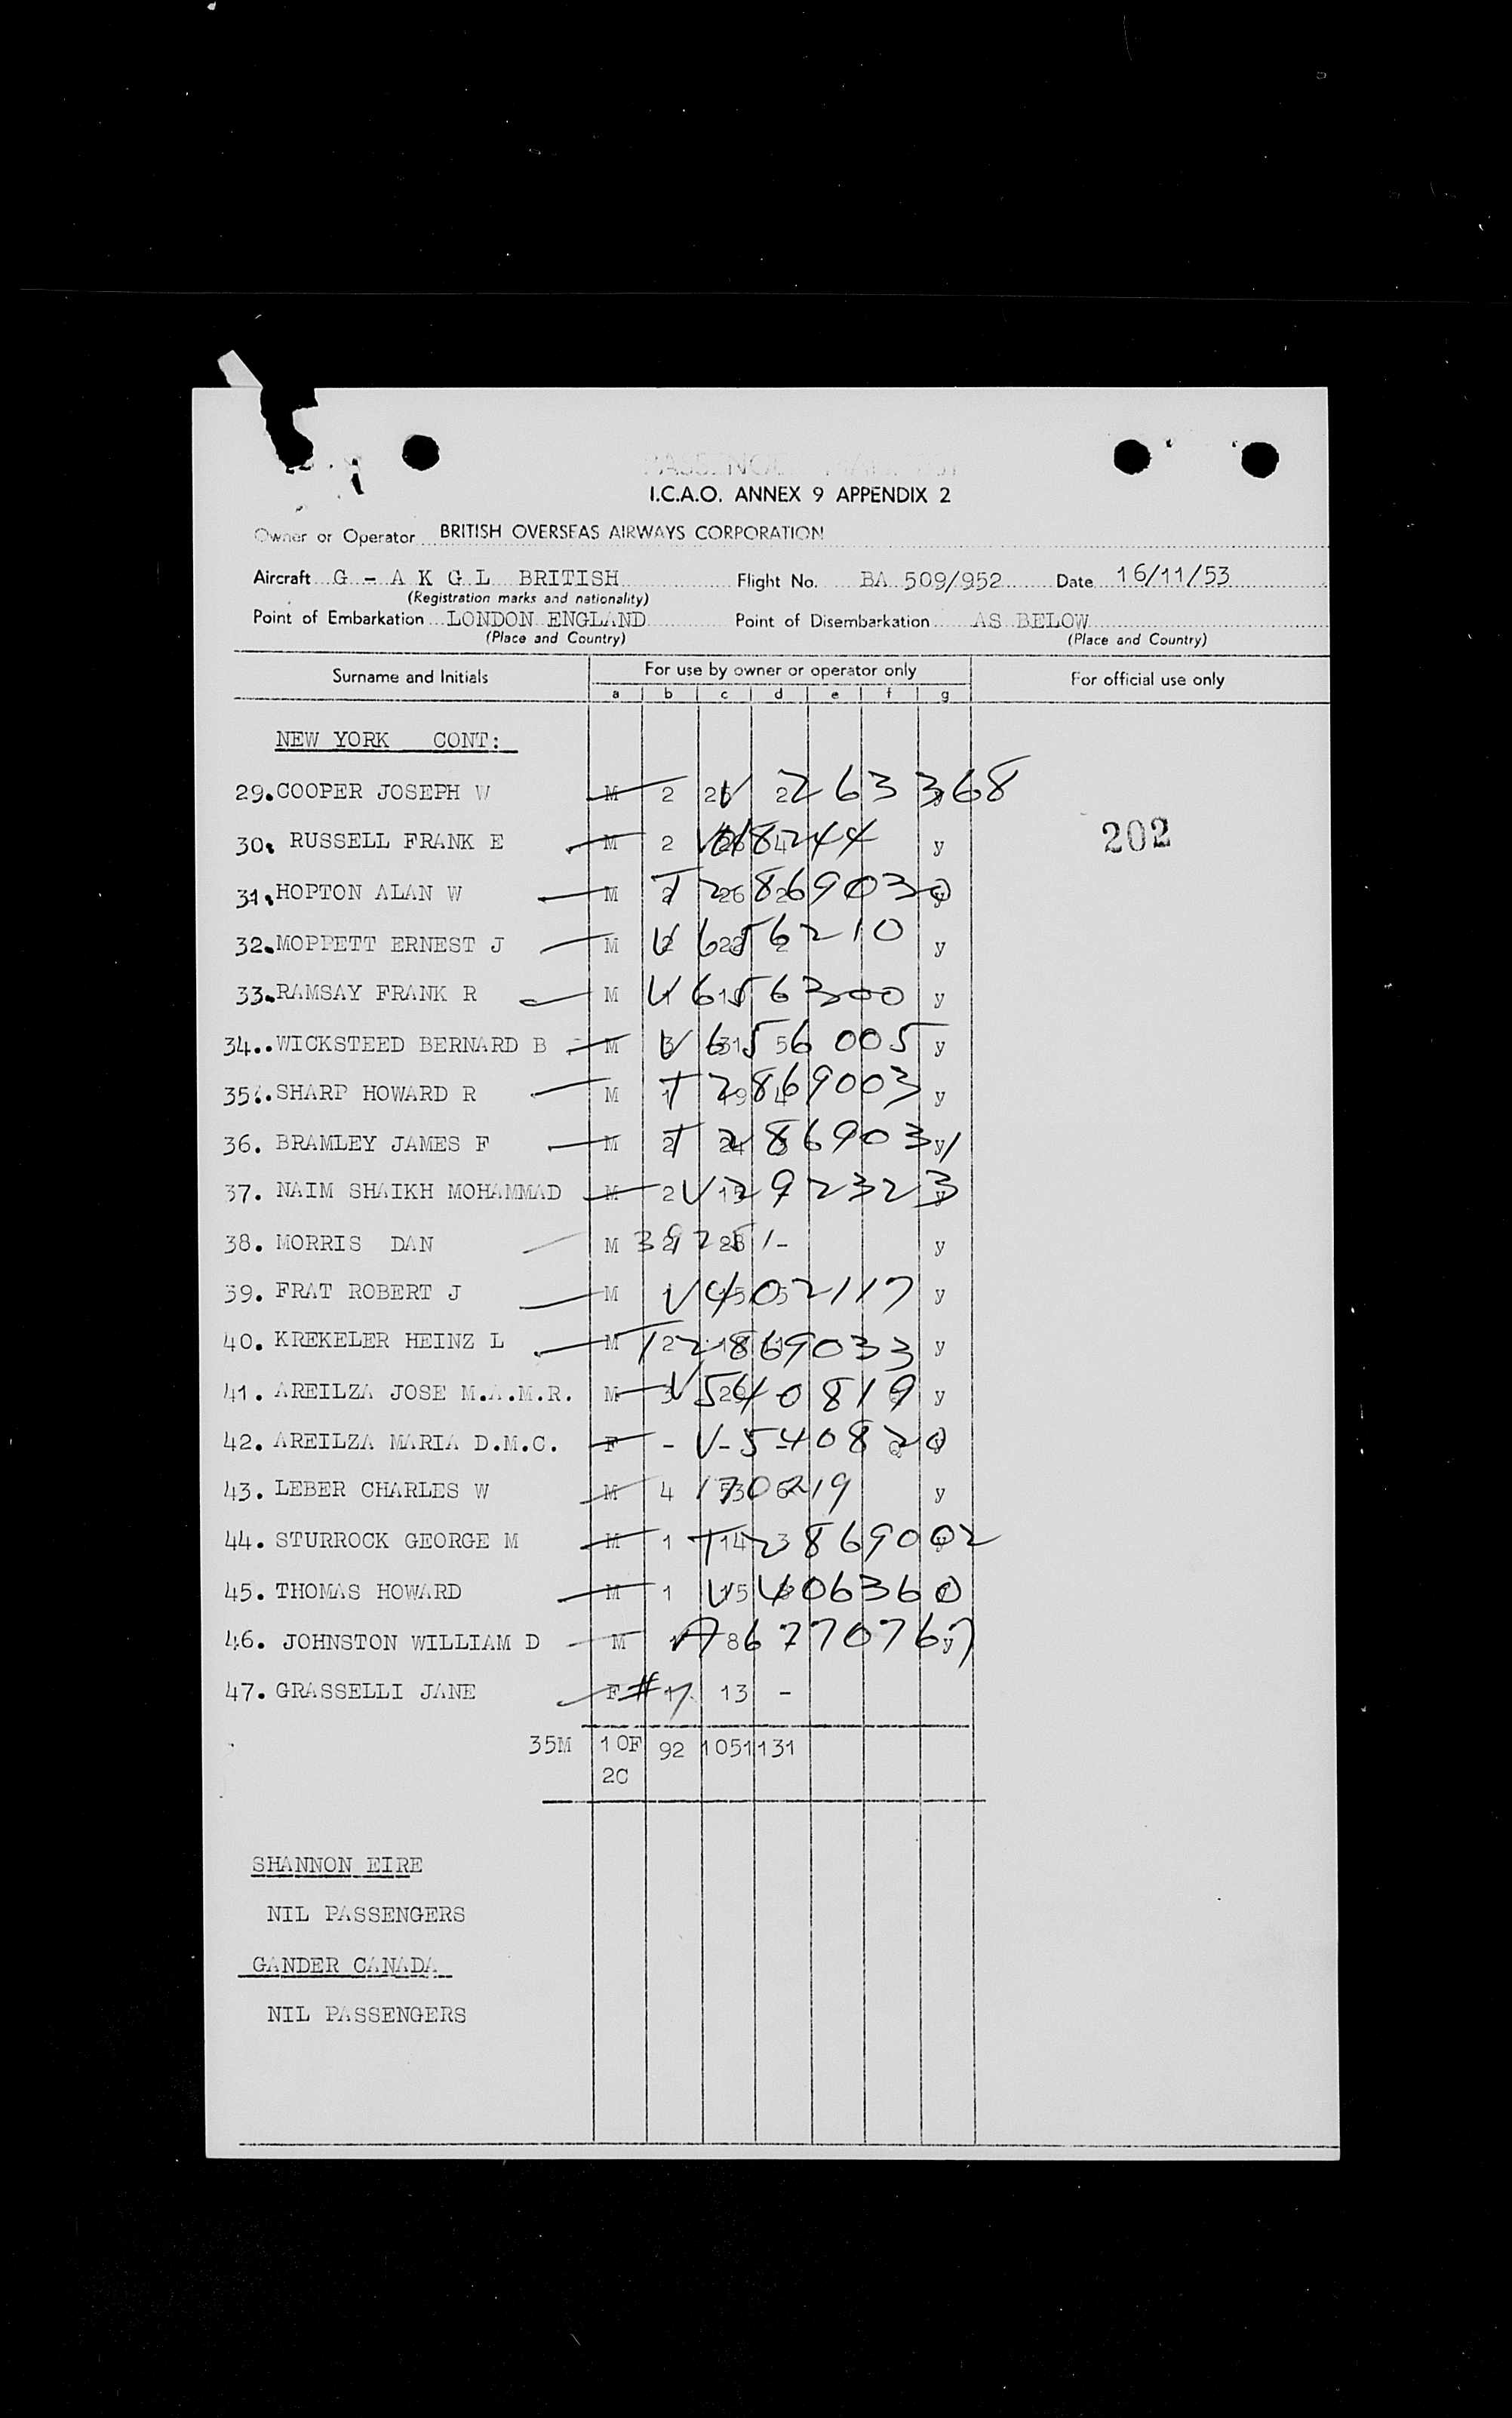 I.C.A.O. ANNEX 9 APPENDIX 2
Owner or Operator BRITISH OVERSEAS AIRWAYS CORPORATION
Aircraft G - A K G L BRITISH Flight No. BA 509/952 Date 16/11/53
(Registration marks and nationality)
Point of Embarkation LONDON ENGLAND Point of Disembarkation AS BELOW
(Place and Country) (Place and Country)
Surname and Initials For use by owner or operator only For official use only
a b c d e f g
NEW YORK CONT:
29. COOPER JOSEPH W M 2 V 263368
30. RUSSELL FRANK E M 2 y
202
31. HOPTON ALAN W M T 2869030
32. MOPPETT ERNEST J M V 6556210 y
33. RAMSAY FRANK R M V 6156300 y
34. WICKSTEED BERNARD B M V 6556005 y
35. SHARP HOWARD R M T 2869003 y
36. BRAMLEY JAMES F M T 2869031 y
37. NAIM SHAIKH MOHAMMAD M 2 V 292323
38. MORRIS DAN M y
39. FRAT ROBERT J M V 402117 y
40. KREKELER HEINZ L M T 2869033 y
41. AREILZA JOSE M.A.M.R. M V 540819 y
42. AREILZA MARIA D.M.C. F - V - 540820
43. LEBER CHARLES W M 4 y
44. STURROCK GEORGE M M 1 T 2869002
45. THOMAS HOWARD M 1 V 406360
46. JOHNSTON WILLIAM D M A 8677076 y
47. GRASSELLI JANE F # 13 -
35M 10F 92 1051 131
2C
SHANNON EIRE
NIL PASSENGERS
GANDER CANADA
NIL PASSENGERS